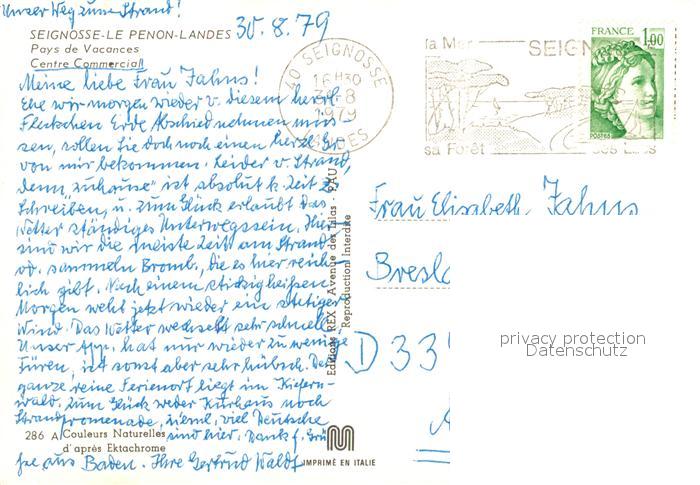 Unser Weg zum Strand!
30.8.79
SEIGNOSSE-LE PENON-LANDES
Pays de Vacances
Centre Commercial
Meine liebe Frau Jahns!
Ehe wir morgen wieder v. diesem herrl.
Fleckchen Erde Abschied nehmen müs-
sen, sollen Sie doch noch einen herzl. Gr.
von mir bekommen. Leider v. Strand,
denn "zuhause" ist absolut k. Zeit z.
Schreiben, u. zum Glück erlaubt das
Wetter ständiges Unterwegssein. Hier
sind wir die meiste Zeit am Strand
od. sammeln Bromb., die es hier reich-
lich gibt. Nach einem stickig heißen
Morgen weht jetzt wieder ein stetiger
Wind. Das Wetter wechselt sehr schnell.
Unser App. hat nur wieder zu wenige
Türen, ist sonst aber sehr hübsch. Der
ganze reine Ferienort liegt im Kiefern-
wald. Zum Glück weder Kurhaus noch
Strandpromenade, zieml. viel Deutsche
sind hier. Dank f. Grü-
ße aus Baden. Ihre Gertrud Waldt
286 A Couleurs Naturelles
d'après Ektachrome
Editions REX - Avenue des Lilas - PAU
Reproduction Interdite
IMPRIMÉ EN ITALIE
40 SEIGNOSSE
16 H30
8
1979
LANDES
la Mer
SEIGN
sa Forêt
ses Lacs
FRANCE
1,00
POSTES
Frau Elisabeth Jahns
Bresl
D 33
privacy protection
Datenschutz